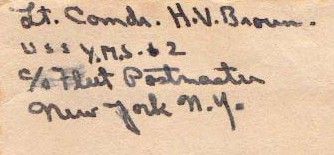 Lt. Comdr. H.V. Brown.
USS Y.M.S. 62
c/o Fleet Postmaster
New York N.Y.